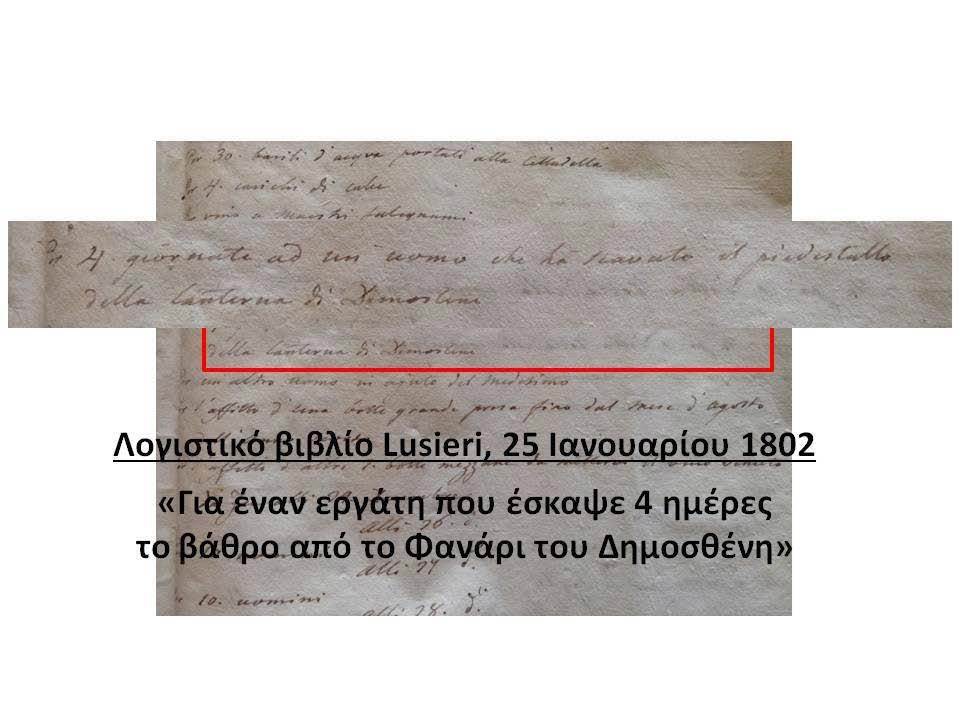 Pr 30. barili d'acqua portati alla Cittadella
Pr 4. carichi di calce
" vino a maestri falegnami
Pr 4. giornate ad un uomo che ha scavato il piedestallo
della Lanterna di Dimostene
della Lanterna di Dimostene
" un altro uomo in ajuto del medesimo
" l'affitto d'una botte grande presa fino dal mese d'agosto
Λογιστικό βιβλίο Lusieri, 25 Ιανουαρίου 1802
«Για έναν εργάτη που έσκαψε 4 ημέρες
το βάθρο από το Φανάρι του Δημοσθένη»
alli 26. d.
alli 27
" 10. uomini
alli 28. d.